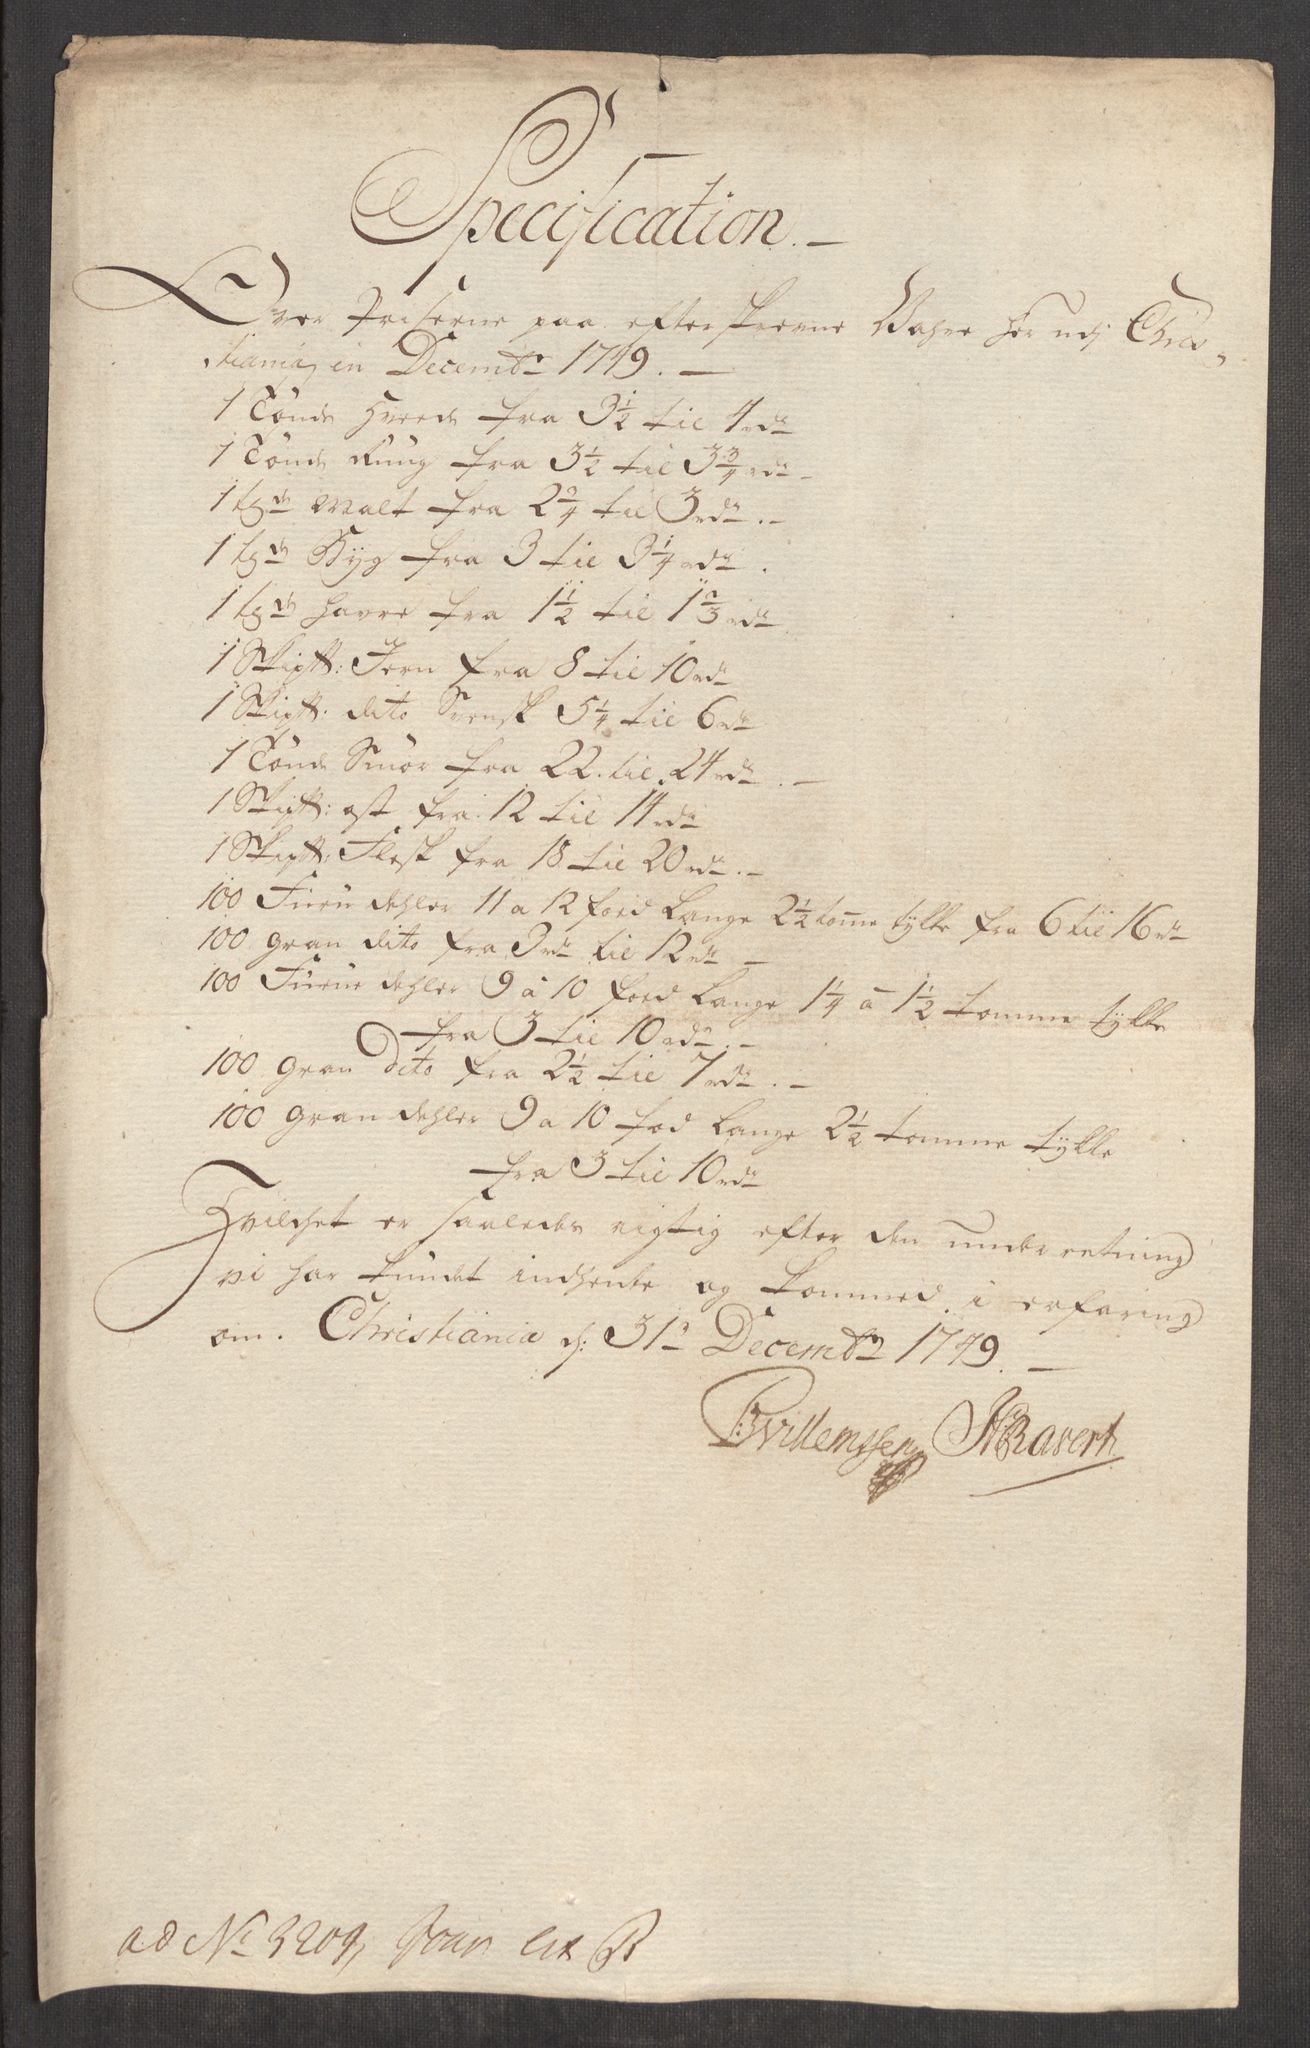 Specification. —
Over Priserne paa efterskrevne Vahre her udj Chri-
stiania, in Decembr 1749. —
1 Tönde Hvede fra 3½ til 4 rdr
1 Tönde Rüug fra 3½ til 3¾ rdr –
1 Malt fra 2¾ til 3 rdr. –
1 Byg fra 3 til 3¼ rdr.
1 Havre fra 1½ til 1⅔ rdr
1 Skip℔: Jern fra 8 til 10 rdr
1 Skip℔: dito Svensk 5¼ til 6 rdr
1 Tönde Smör fra 22. til 24 rdr. –
1 Skip℔: ost fra 12 til 14 rdr
1 Skip℔: Flesk fra 18 til 20 rdr. –
100 Furu dehler 11 a 12 foed Lange 2½ tomme tykke fra 6 til 16 rdr
100 gran dito fra 3 rdr til 12 rdr –
100 Furu dehler 9 a 10 foed Lange 1¼ a 1½ tomme tykke
fra 3 til 10 rdr. –
100 gran Dito fra 2½ til 7 rdr. –
100 gran dehler 9 a 10 fod Lange 2½ tomme tykke
fra 3 til 10 rdr
Hvilchet er saaledes rigtig efter den underretning
vi har kundet indhente og kommed i erfaring
om. Christiania d: 31 Decembr 1749. —
Willemssen Ravert
ad No 3209 Lit B